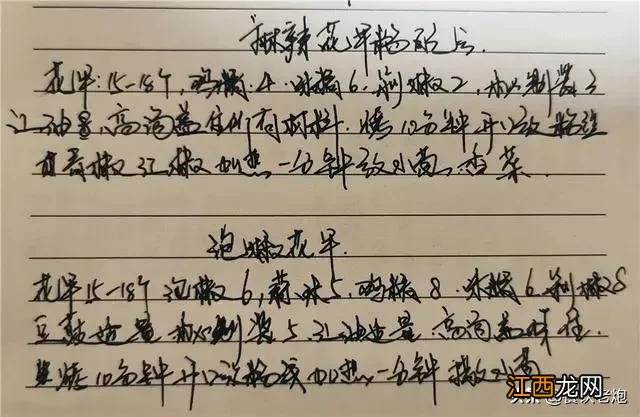 麻辣花甲粉配方
花甲:15-18个,鸡精:4.味精6.剁椒2,秘制酱3
红油适量,高汤盖住所有材料.烧10分钟开口放粉丝
青椒红椒加热一分钟放小葱,香菜
泡椒花甲.
花甲15-18个泡椒6,蒜米5,鸡精8.味精6.剁椒28
豆豉适量秘制酱5.红油适量.高汤盖住.
烧10分钟开口放粉丝加热一分钟撒小葱
江西龙网
头条@
老炮